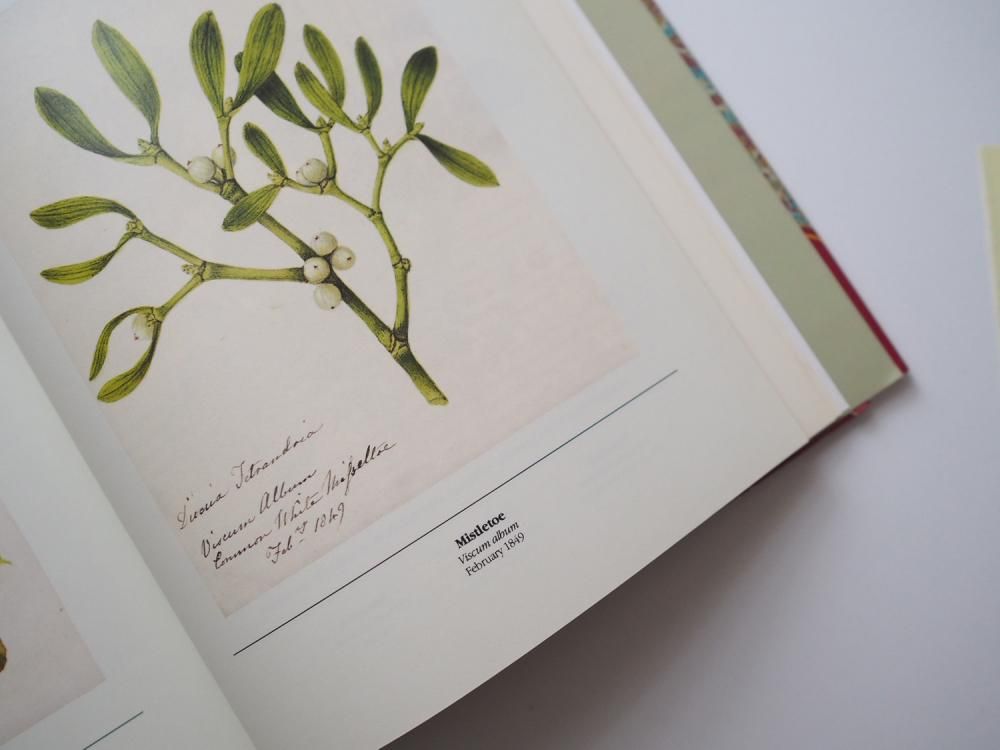 Diœcia Tetrandria
Viscum Album
Common White Misseltoe
Feb-y 1849
Mistletoe
Viscum album
February 1849